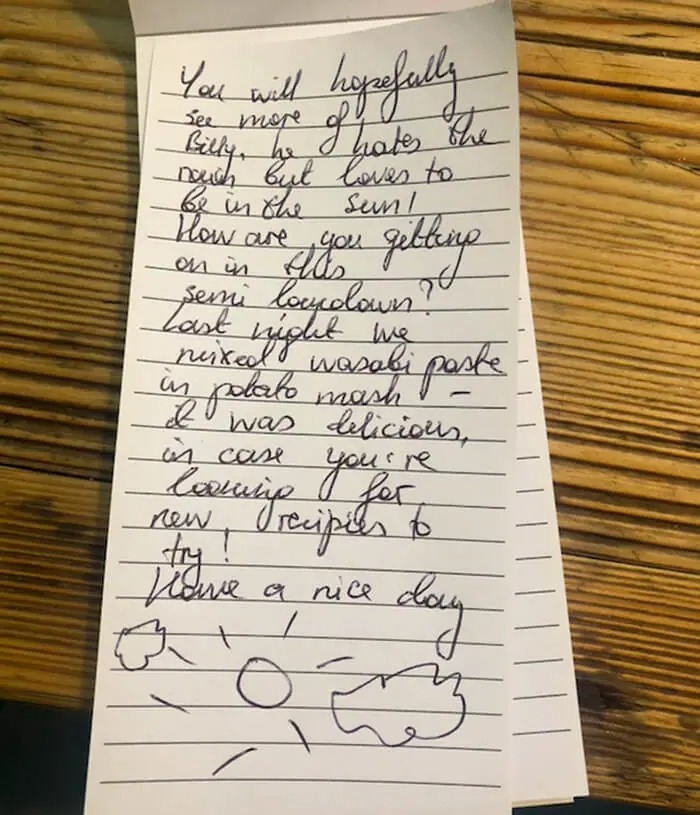 You will hopefully
see more of
Billy, he hates the
but loves to
be in the sun!
How are you getting
on in this
semi lockdown?
Last night we
mixed wasabi paste
in potato mash –
it was delicious,
in case you're
looking for
new recipies to
try!
Have a nice day